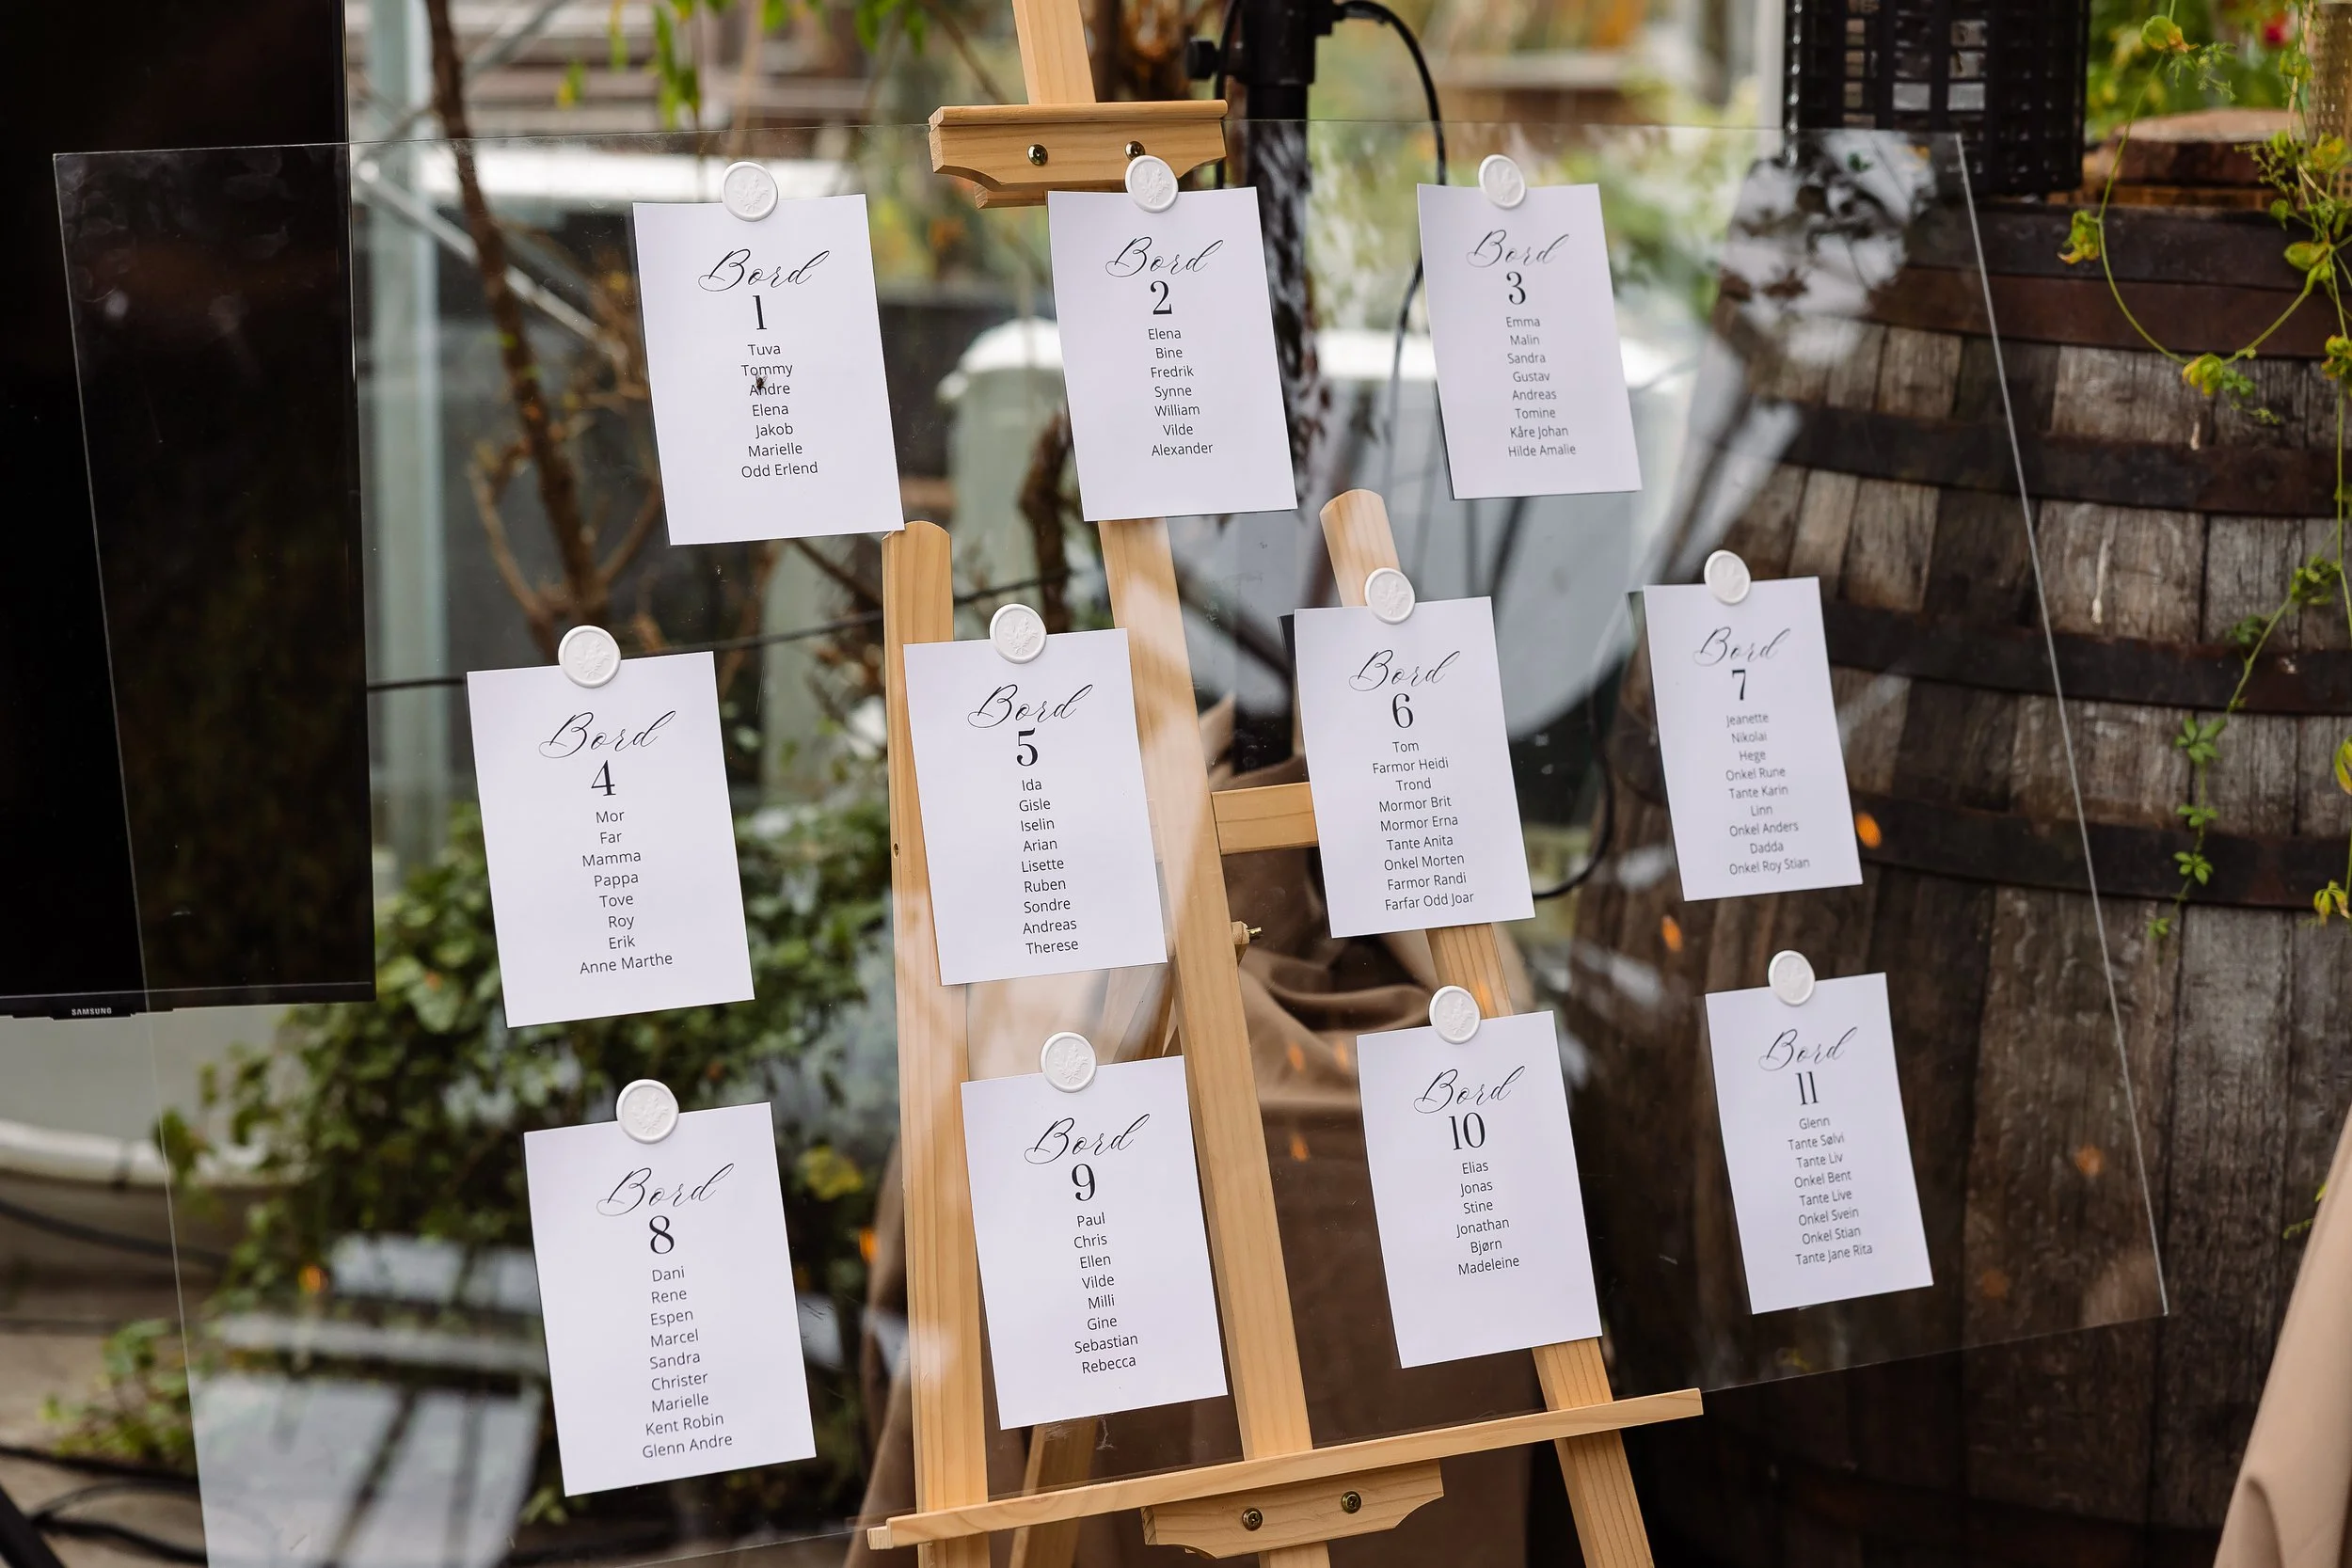 Bord
1
Tuva
Tommy
Andre
Elena
Jakob
Marielle
Odd Erlend
Bord
2
Elena
Bine
Fredrik
Synne
William
Vilde
Alexander
Bord
3
Emma
Malin
Sandra
Gustav
Andreas
Tomine
Kåre Johan
Hilde Amalie
Bord
4
Mor
Far
Mamma
Pappa
Tove
Roy
Erik
Anne Marthe
Bord
5
Ida
Gisle
Iselin
Arian
Lisette
Ruben
Sondre
Andreas
Therese
Bord
6
Tom
Farmor Heidi
Trond
Mormor Brit
Mormor Erna
Tante Anita
Onkel Morten
Farmor Randi
Farfar Odd Joar
Bord
7
Jeanette
Nikolai
Hege
Onkel Rune
Tante Karin
Linn
Onkel Anders
Dadda
Onkel Roy Stian
Bord
8
Dani
Rene
Espen
Marcel
Sandra
Christer
Marielle
Kent Robin
Glenn Andre
Bord
9
Paul
Chris
Ellen
Vilde
Milli
Gine
Sebastian
Rebecca
Bord
10
Elias
Jonas
Stine
Jonathan
Bjørn
Madeleine
Bord
11
Glenn
Tante Sølvi
Tante Liv
Onkel Bent
Tante Live
Onkel Svein
Onkel Stian
Tante Jane Rita
SAMSUNG